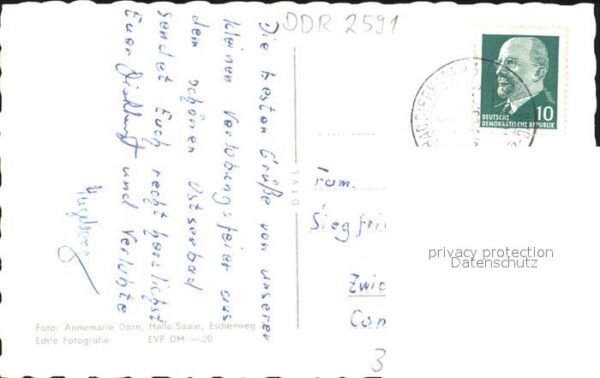 DDR 2591
Die besten Grüße von unserer
kleinen Verlobungsfeier aus
dem schönen Ostseebad
sendet Euch recht herzlichst
Euer und Verlobte
Ingeborg
DEUTSCHE
DEMOKRATISCHE REPUBLIK
10
Fam.
Siegfri
Zwic
privacy protection
Datenschutz
3
Foto: Annemarie Dorn, Halle/Saale, Eschenweg
Echte Fotografie EVP DM —.20